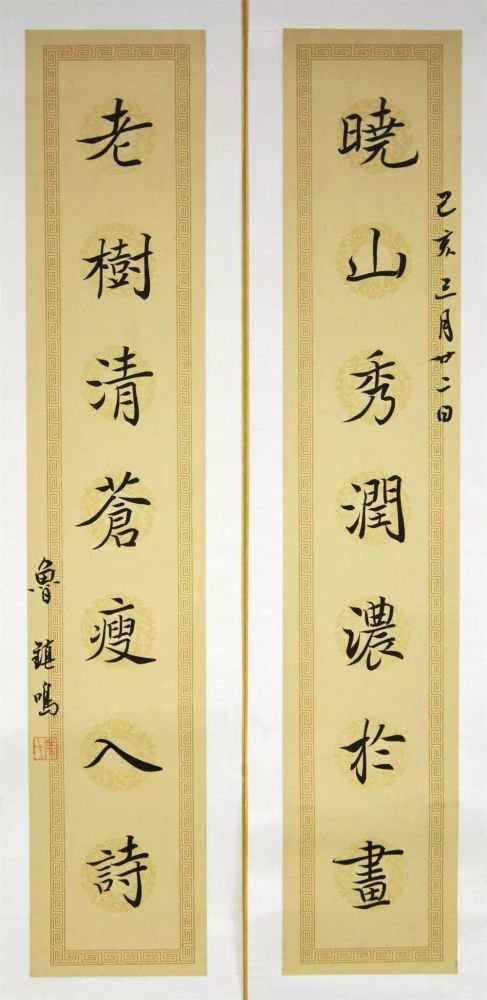 己亥三月廿二日
曉山秀潤濃於畫
老樹清蒼瘦入詩
魯鎮鳴